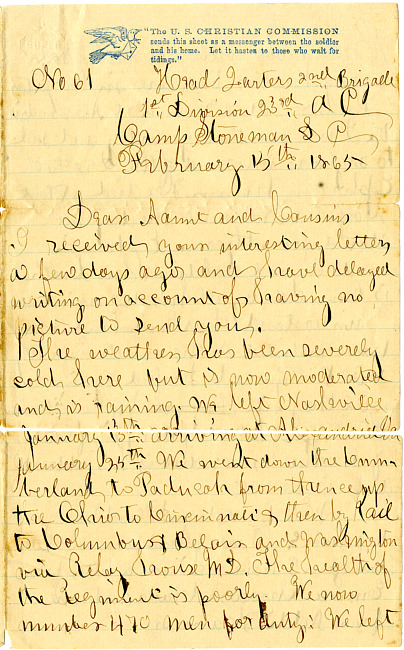 "The U. S. CHRISTIAN COMMISSION
sends this sheet as a messenger between the soldier
and his home. Let it hasten to those who wait for
tidings."
No 61
Head Qarters 2nd Brigade
1st Division 23rd A C
Camp Stoneman D C
February 15th 1865
Dear Aunt and Cousins
I received your interesting letter
a few days ago and have delayed
writing on account of having no
picture to send you.
The weather has been severely
cold here but is now moderated
and is raining. We left Nashville
January 15th arriving at Alexandria Va
January 25th. We went down the Cum-
berland to Paducah from thence up
the Ohio to Cincinnati & then by Rail
to Columbus & Belair and Washington
via Relay House MD. The health of
the Regiment is poorly. We now
number 410 men for duty: We left